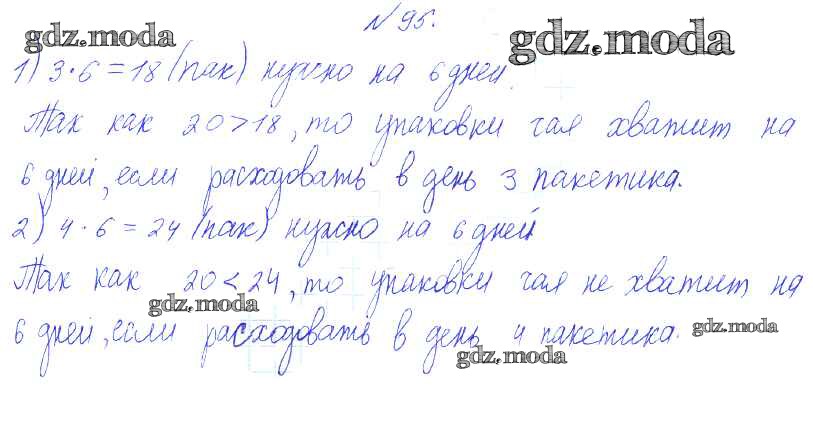 № 95.
gdz.moda gdz.moda
1) 3·6=18 (пак) нужно на 6 дней.
Так как 20>18, то упаковки чая хватит на
6 дней, если расходовать в день 3 пакетика.
2) 4·6=24 (пак) нужно на 6 дней
Так как 20<24, то упаковки чая не хватит на
gdz.moda
6 дней, если расходовать в день 4 пакетика. gdz.moda
gdz.moda